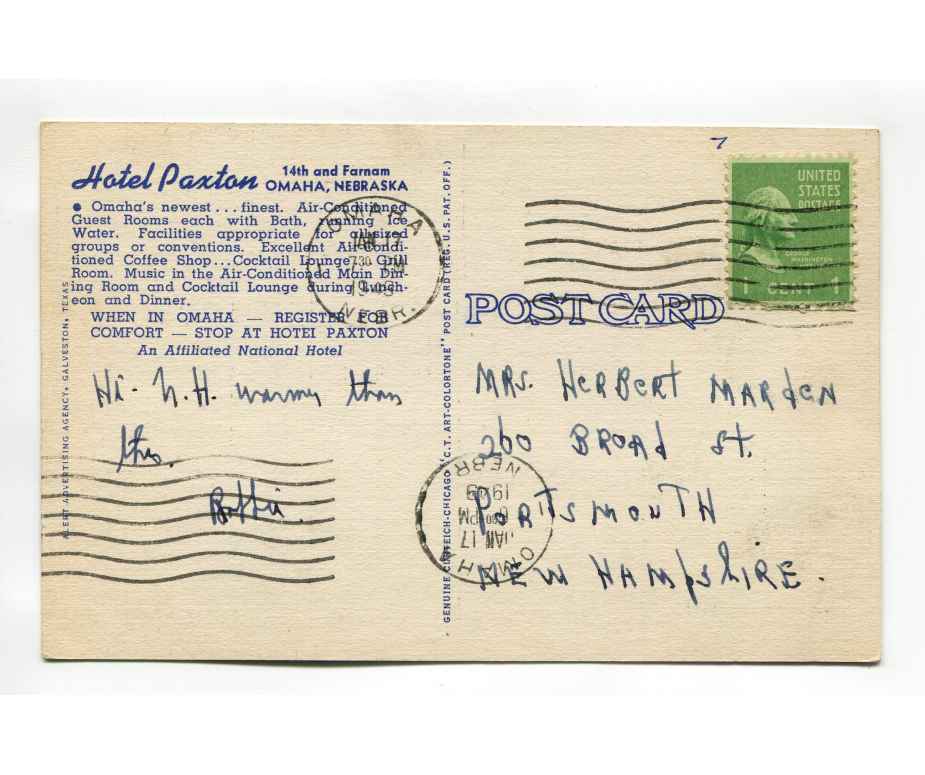 Hotel Paxton
14th and Farnam
OMAHA, NEBRASKA
● Omaha's newest ... finest. Air-Conditioned
Guest Rooms each with Bath, running Ice
Water. Facilities appropriate for all-sized
groups or conventions. Excellent Air-Condi-
tioned Coffee Shop ... Cocktail Lounge ... Grill
Room. Music in the Air-Conditioned Main Din-
ing Room and Cocktail Lounge during Lunch-
eon and Dinner.
WHEN IN OMAHA — REGISTER FOR
COMFORT — STOP AT HOTEL PAXTON
An Affiliated National Hotel
ALERT ADVERTISING AGENCY, GALVESTON, TEXAS
OMAHA
JAN 17
730 PM
NEBR.
Hi - N.H. warmer than
this.
GENUINE CURTEICH-CHICAGO "C.T. ART-COLORTONE" POST CARD (REG. U.S. PAT. OFF.)
7
UNITED
STATES
POSTAGE
GEORGE
WASHINGTON
1 CENT 1
POST CARD
MRS. HERBERT MARDEN
260 BROAD St.
PORTSMOUTH
NEW HAMPSHIRE.
OMAHA
JAN 17
PM
NEBR